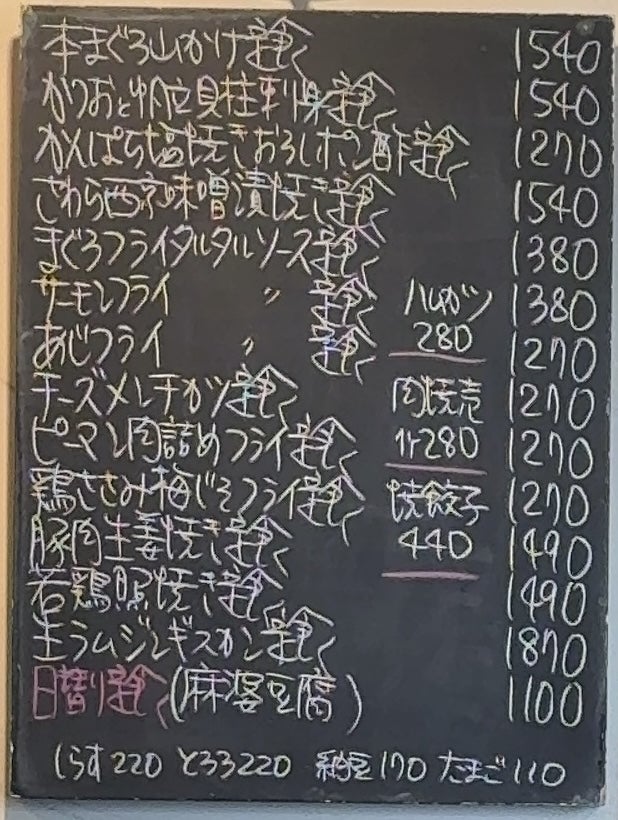 本まぐろ山かけ定食 1540
かつおと帆立貝柱刺身定食 1540
かんぱち塩焼きおろしポン酢定食 1270
さわら西京味噌漬焼き定食 1540
まぐろフライタルタルソース定食 1380
サーモンフライ 〃 定食 1380
あじフライ 〃 定食 1270
チーズメンチカツ定食 1270
ピーマン肉詰めフライ定食 1270
鶏ささみ梅じそフライ定食 1270
豚肉生姜焼き定食 1490
若鶏照焼き定食 1490
生ラムジンギスカン定食 1870
日替り定食(麻婆豆腐) 1100
ハムカツ
280
肉焼売
1ケ280
焼餃子
440
しらす220 とろろ220 納豆170 たまご110